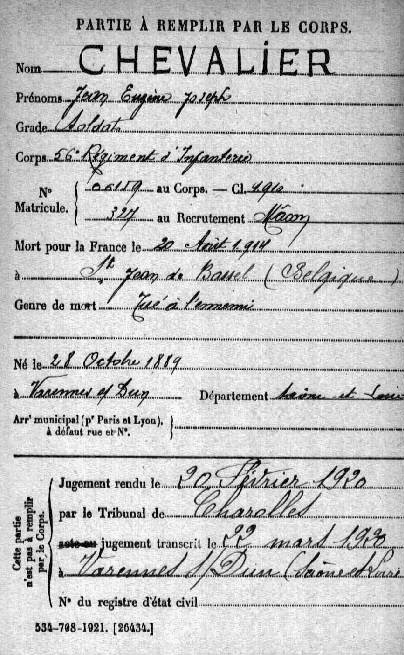 PARTIE À REMPLIR PAR LE CORPS.
Nom CHEVALIER
Prénoms Jean Eugène Joseph
Grade Soldat
Corps 56e Régiment d'Infanterie
No Matricule. { 06159 au Corps. — Cl. 1910
327 au Recrutement Mâcon
Mort pour la France le 20 Août 1914
à St Jean de Bassel (Belgique)
Genre de mort Tué à l'ennemi
Né le 28 Octobre 1889
à Varennes s/ Dun Département Saône et Loire
Arrt municipal (pr Paris et Lyon),
à défaut rue et No.
Cette partie n'est pas à remplir par le Corps.
Jugement rendu le 20 Février 1920
par le Tribunal de Charolles
acte ou jugement transcrit le 22 mars 1920
à Varennes s/ Dun (Saône et Loire
No du registre d'état civil
534-708-1921. [26434.]